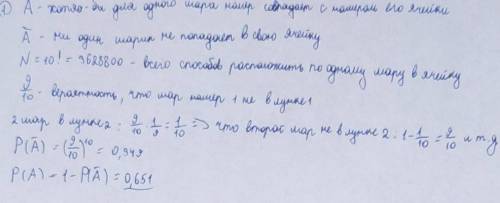 ① А - хотя-бы для одного шара номер совпадает с номером его ячейки
Ā - ни один шарик не попадает в свою ячейку
N = 10! = 9628800 - всего способов расположить по одному шару в ячейку
9/10 - вероятность, что шар номер 1 не в лунке 1
2 шар в лунке 2 : 9/10 · 1/9 = 1/10 => что второй шар не в лунке 2 : 1 - 1/10 = 9/10 и т.д
P(Ā) = (9/10)^10 = 0,349
P(A) = 1 - P(Ā) = 0,651